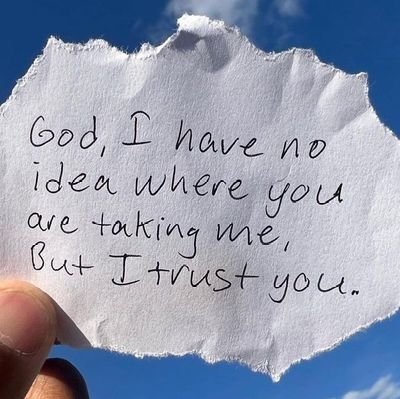 God, I have no
idea where you
are taking me,
But I trust you.